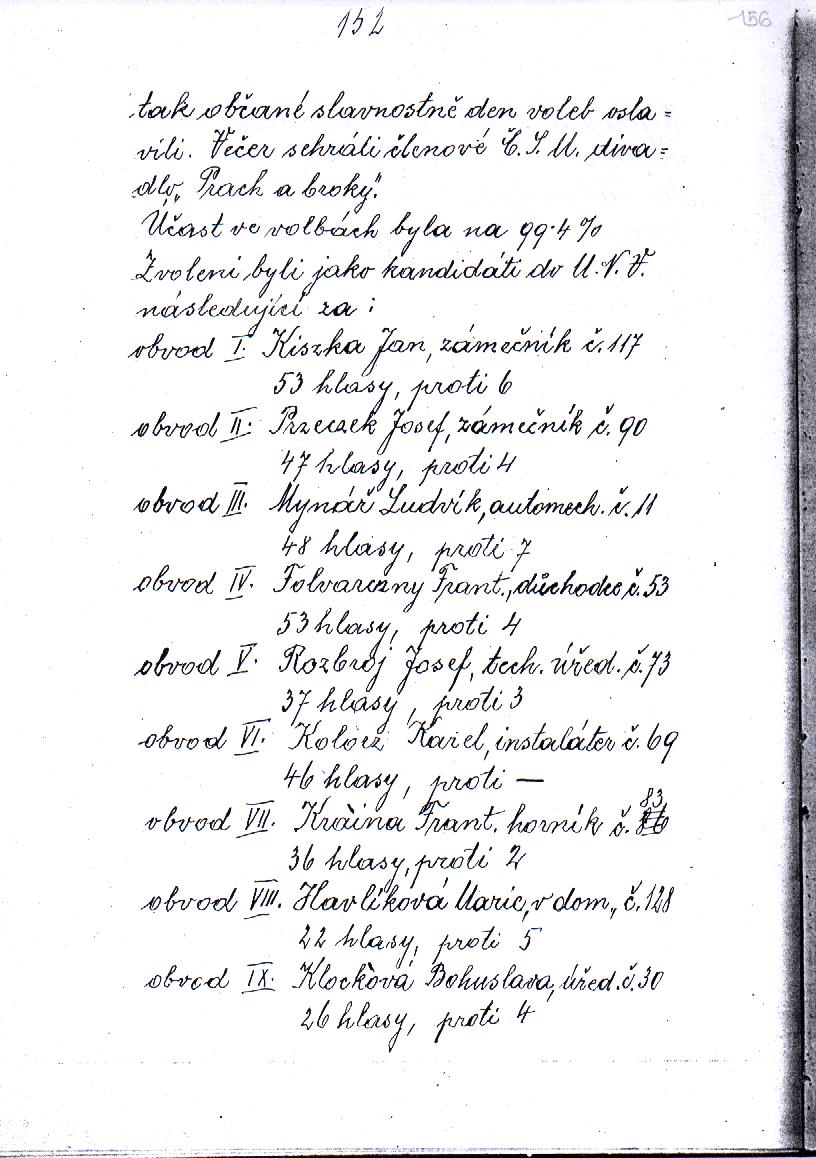 152
156
tak občané slavnostně den voleb osla=
vili. Večer sehráli členové Č.S.M. diva=
dlo „Prach a broky".
Účast ve volbách byla na 99·4 %
Zvoleni byli jako kandidáti do M.N.V.
následující za :
obvod I. Kiszka Jan, zámečník č. 117
53 hlasy, proti 6
obvod II. Przeczek Josef, zámečník č. 90
47 hlasy, proti 4
obvod III. Mynář Ludvík, automech. č. 11
48 hlasy, proti 7
obvod IV. Folvarczny Frant., důchodce č. 53
53 hlasy, proti 4
obvod V. Rozbroj Josef, tech. úřed. č. 73
37 hlasy, proti 3
obvod VI. Kolocz Karel, instalátér č. 69
46 hlasy, proti —
83
obvod VII. Kraina Frant. horník č.
36 hlasy, proti 2
obvod VIII. Havlíková Marie, v dom., č. 128
22 hlasy, proti 5
obvod IX. Klocková Bohuslava, úřed. č. 30
26 hlasy, proti 4